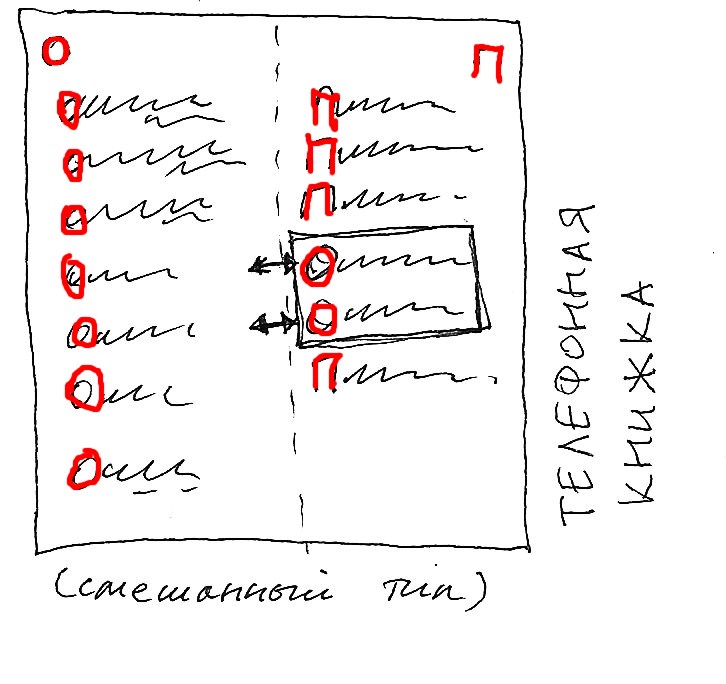 О
О
О
О
О
О
О
О
П
П
П
П
О
О
П
ТЕЛЕФОННАЯ
КНИЖКА
(смешанный тип)